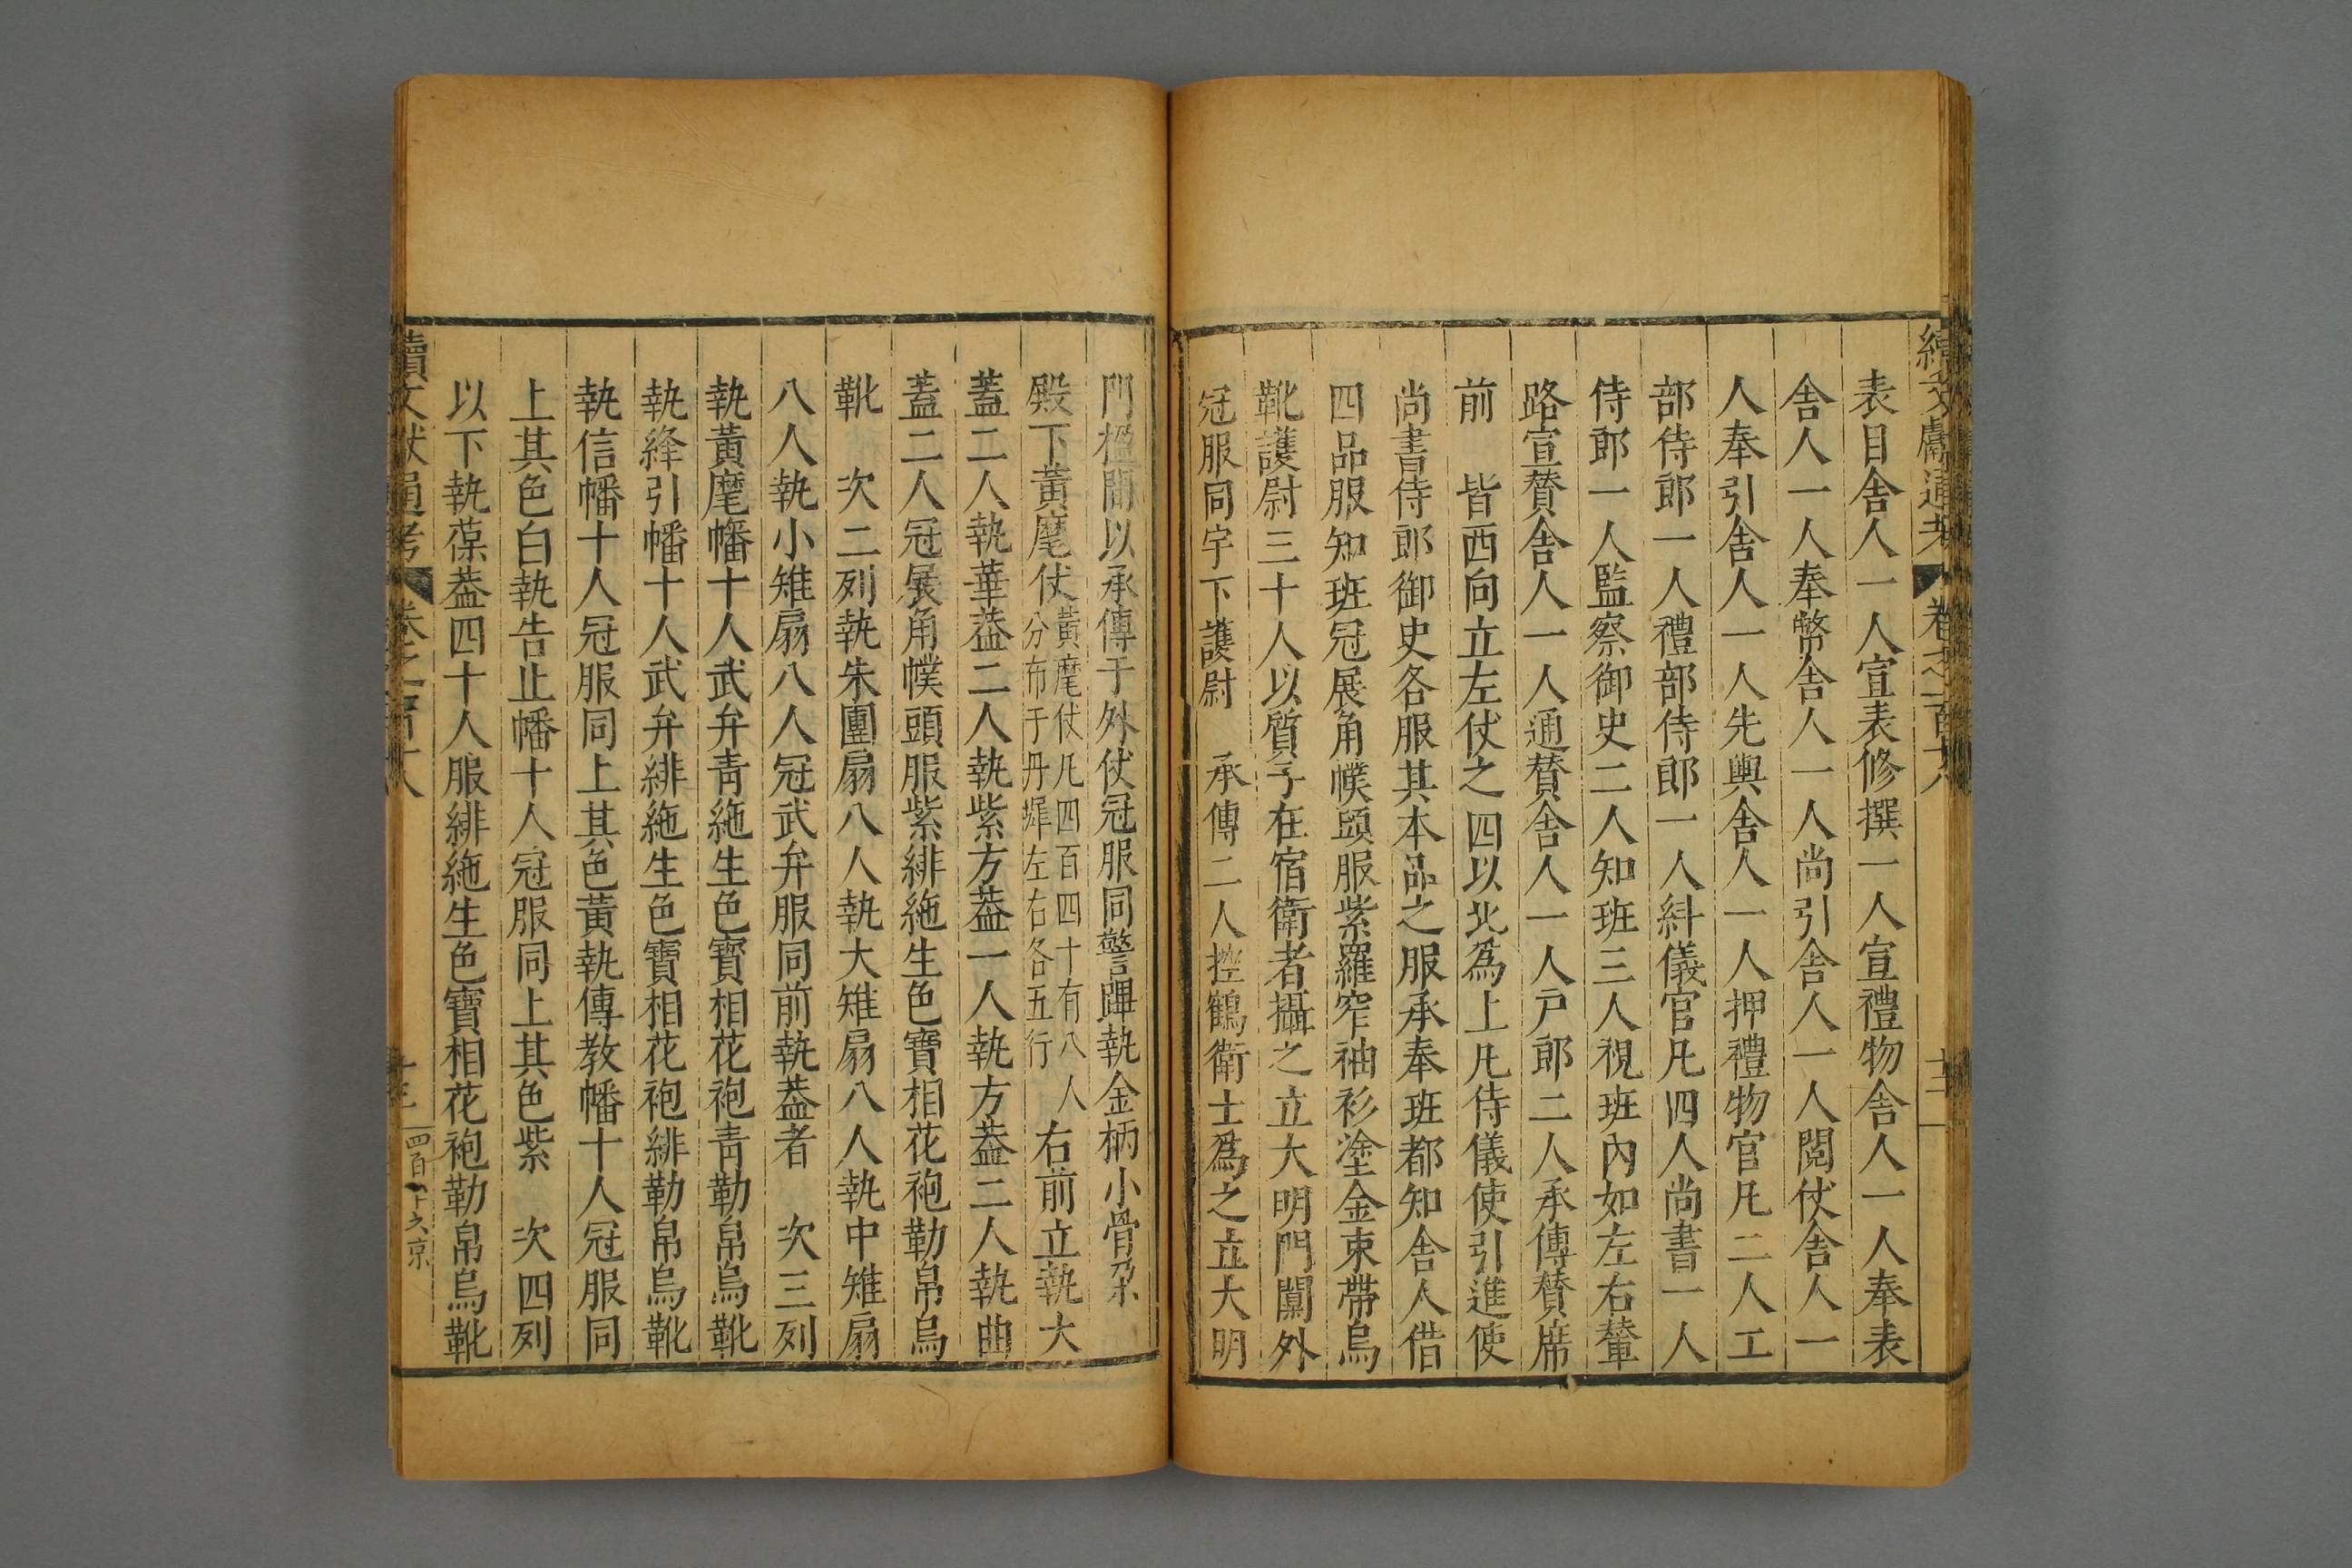 續文獻通考 卷之一百十八 十三
表目舍人一人宣表修撰一人宣禮物舍人一人奉表
舍人一人奉幣舍人一人尚引舍人一人閱仗舍人一
人奉引舍人一人先輿舍人一人押禮物官凡二人工
部侍郎一人禮部侍郎一人糾儀官凡四人尚書一人
侍郎一人監察御史二人知班三人視班內如左右輦
路宣贊舍人一人通贊舍人一人戶郎二人承傳贊席
前 皆西向立左仗之四以北為上凡侍儀使引進使
尚書侍郎御史各服其本品之服承奉班都知舍人借
四品服知班冠展角幞頭服紫羅窄袖衫塗金束帶烏
靴護尉三十人以質子在宿衛者攝之立大明門闑外
冠服同宇下護尉 承傳二人控鶴衛士為之立大明
門楹間以承傳于外仗冠服同警蹕執金柄小骨朶
殿下黃麾仗 黃麾仗凡四百四十有八人分布于丹墀左右各五行 右前立執大
蓋二人執華蓋二人執紫方蓋一人執方蓋二人執曲
蓋二人冠展角幞頭服紫緋絁生色寶相花袍勒帛烏
靴 次二列執朱團扇八人執大雉扇八人執中雉扇
八人執小雉扇八人冠武弁服同前執蓋者 次三列
執黃麾幡十人武弁青絁生色寶相花袍青勒帛烏靴
執絳引幡十人武弁緋絁生色寶相花袍緋勒帛烏靴
執信幡十人冠服同上其色黃執傳教幡十人冠服同
上其色白執告止幡十人冠服同上其色紫 次四列
以下執葆蓋四十人服緋絁生色寶相花袍勒帛烏靴
續文獻通考 卷之一百十八 十三 四百十六京